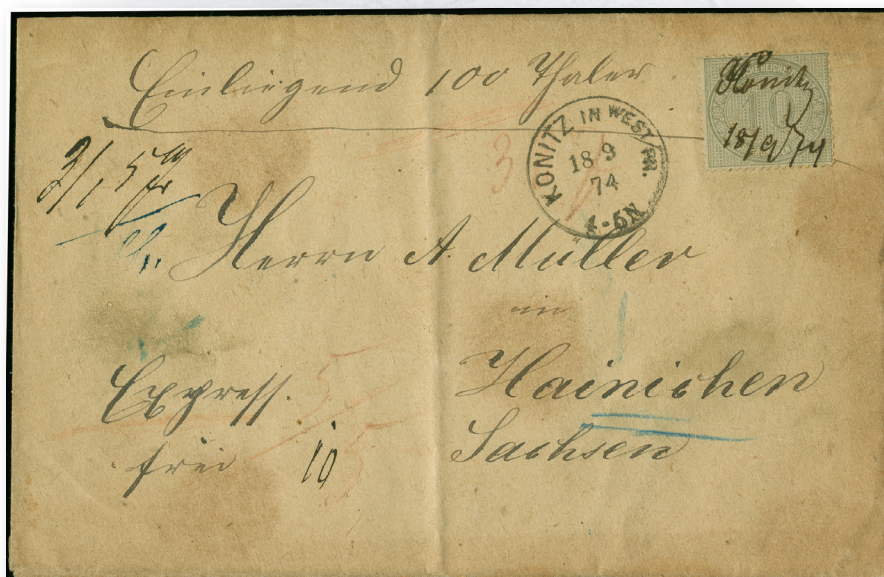 Einliegend 100 Thaler
REICHS
10
Konitz
18/9 74
KONITZ IN WEST PR.
18 9
74
4-5N
3
Herrn A. Müller
in
Hainichen
Sachsen
Express.
frei
10
5
5